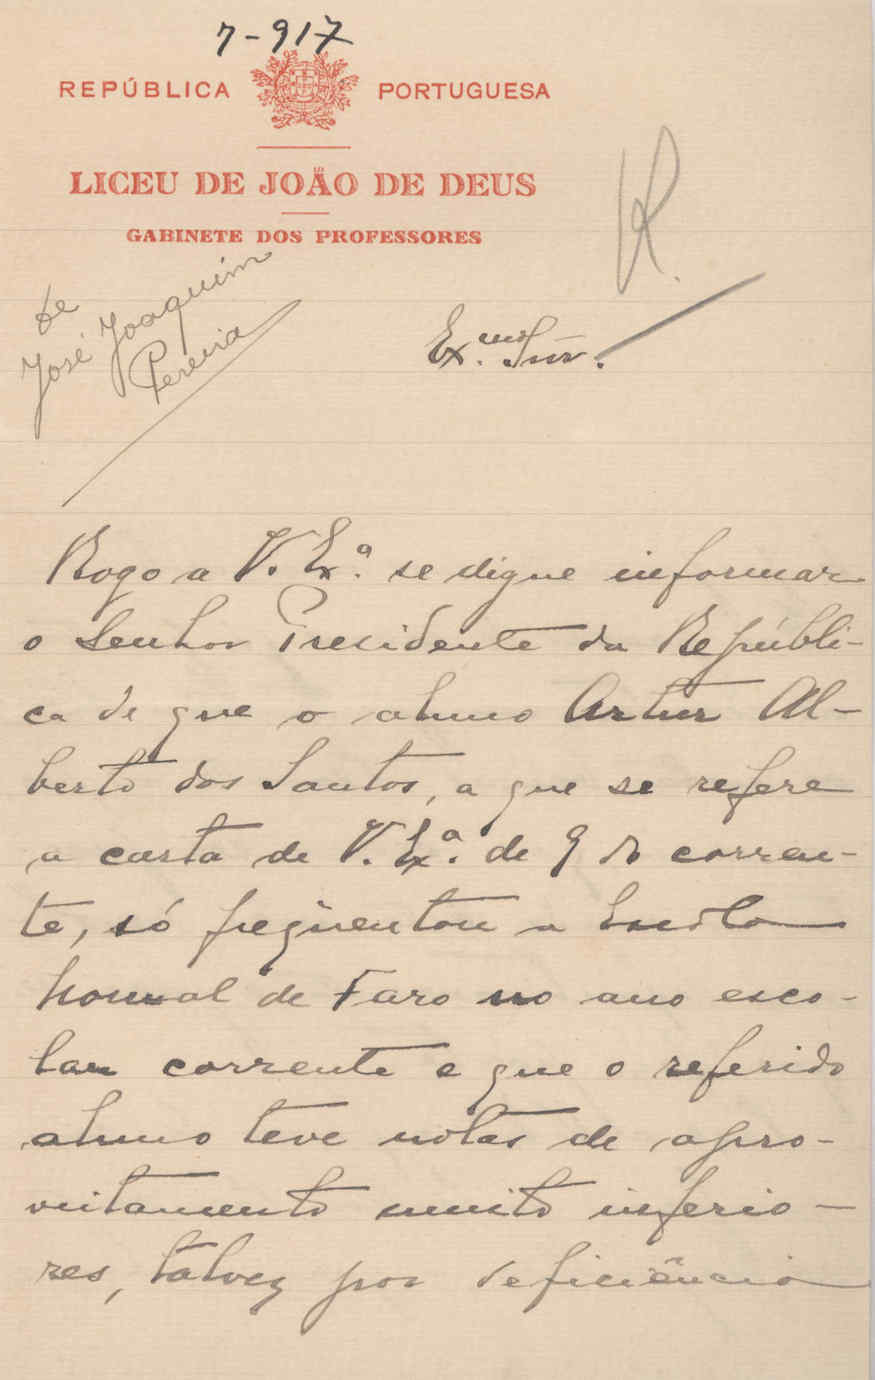 7-917
REPÚBLICA PORTUGUESA
LICEU DE JOÃO DE DEUS
GABINETE DOS PROFESSORES
R.
de
José Joaquim
Pereira
Ex.mo Snr.
Rogo a V. Ex.ª se digne informar
o Senhor Presidente da Repúbli-
ca de que o aluno Artur Al-
berto dos Santos, a que se refere
a carta de V. Ex.ª de 9 do corren-
te, só freqüentou a Escola
Normal de Faro no ano esco-
lar corrente e que o referido
aluno teve notas de apro-
veitamento muito inferio-
res, talvez por deficiência